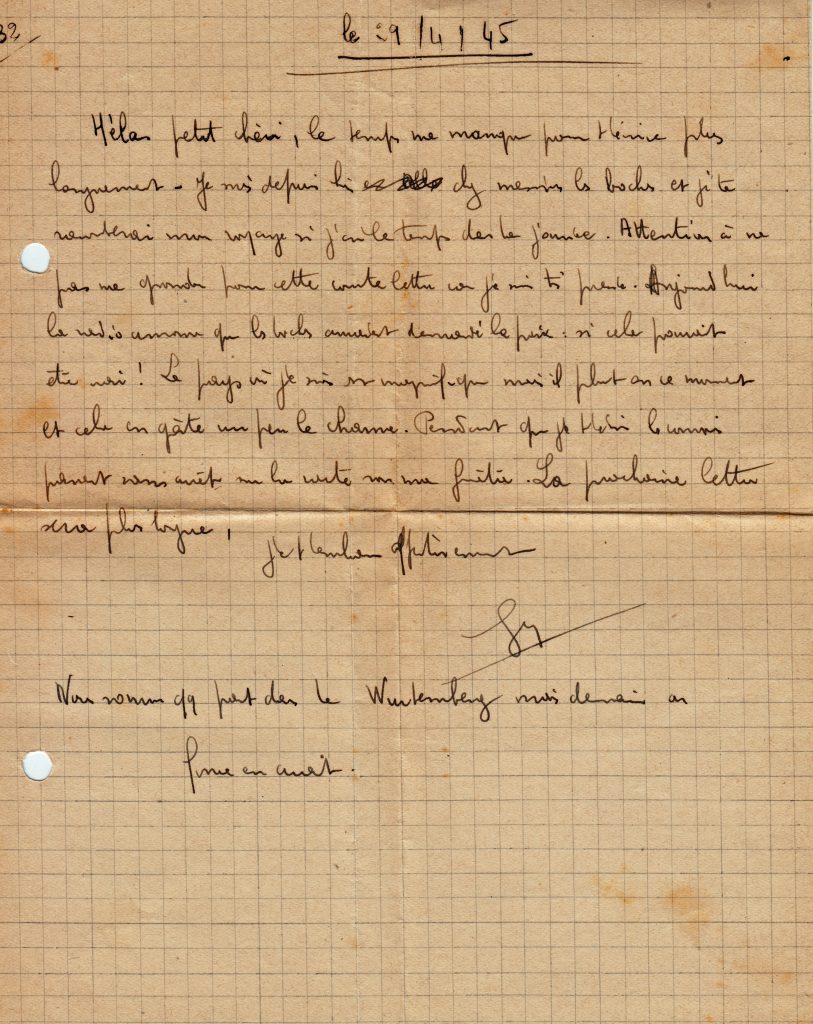 32
le 29/4/45
Hélas petit chéri, le temps me manque pour t'écrire plus
longuement - Je suis depuis hier chez messieurs les bochs et je te
raconterai mon voyage si j'ai le temps dans la journée. Attention à ne
pas me gronder pour cette courte lettre car je suis très pressé. Aujourd'hui
la radio annonce que les bochs auraient demandé la paix : si cela pouvait
être vrai ! Le pays où je suis est magnifique mais il pleut en ce moment
et cela en gâte un peu le charme. Pendant que je t'écris les convois
passent sans arrêt sur la route sous ma fenêtre. La prochaine lettre
sera plus longue,
je t'embrasse affectueusement
Gy
Nous sommes qq part dans le Wurtemberg mais demain on
fonce en avant.